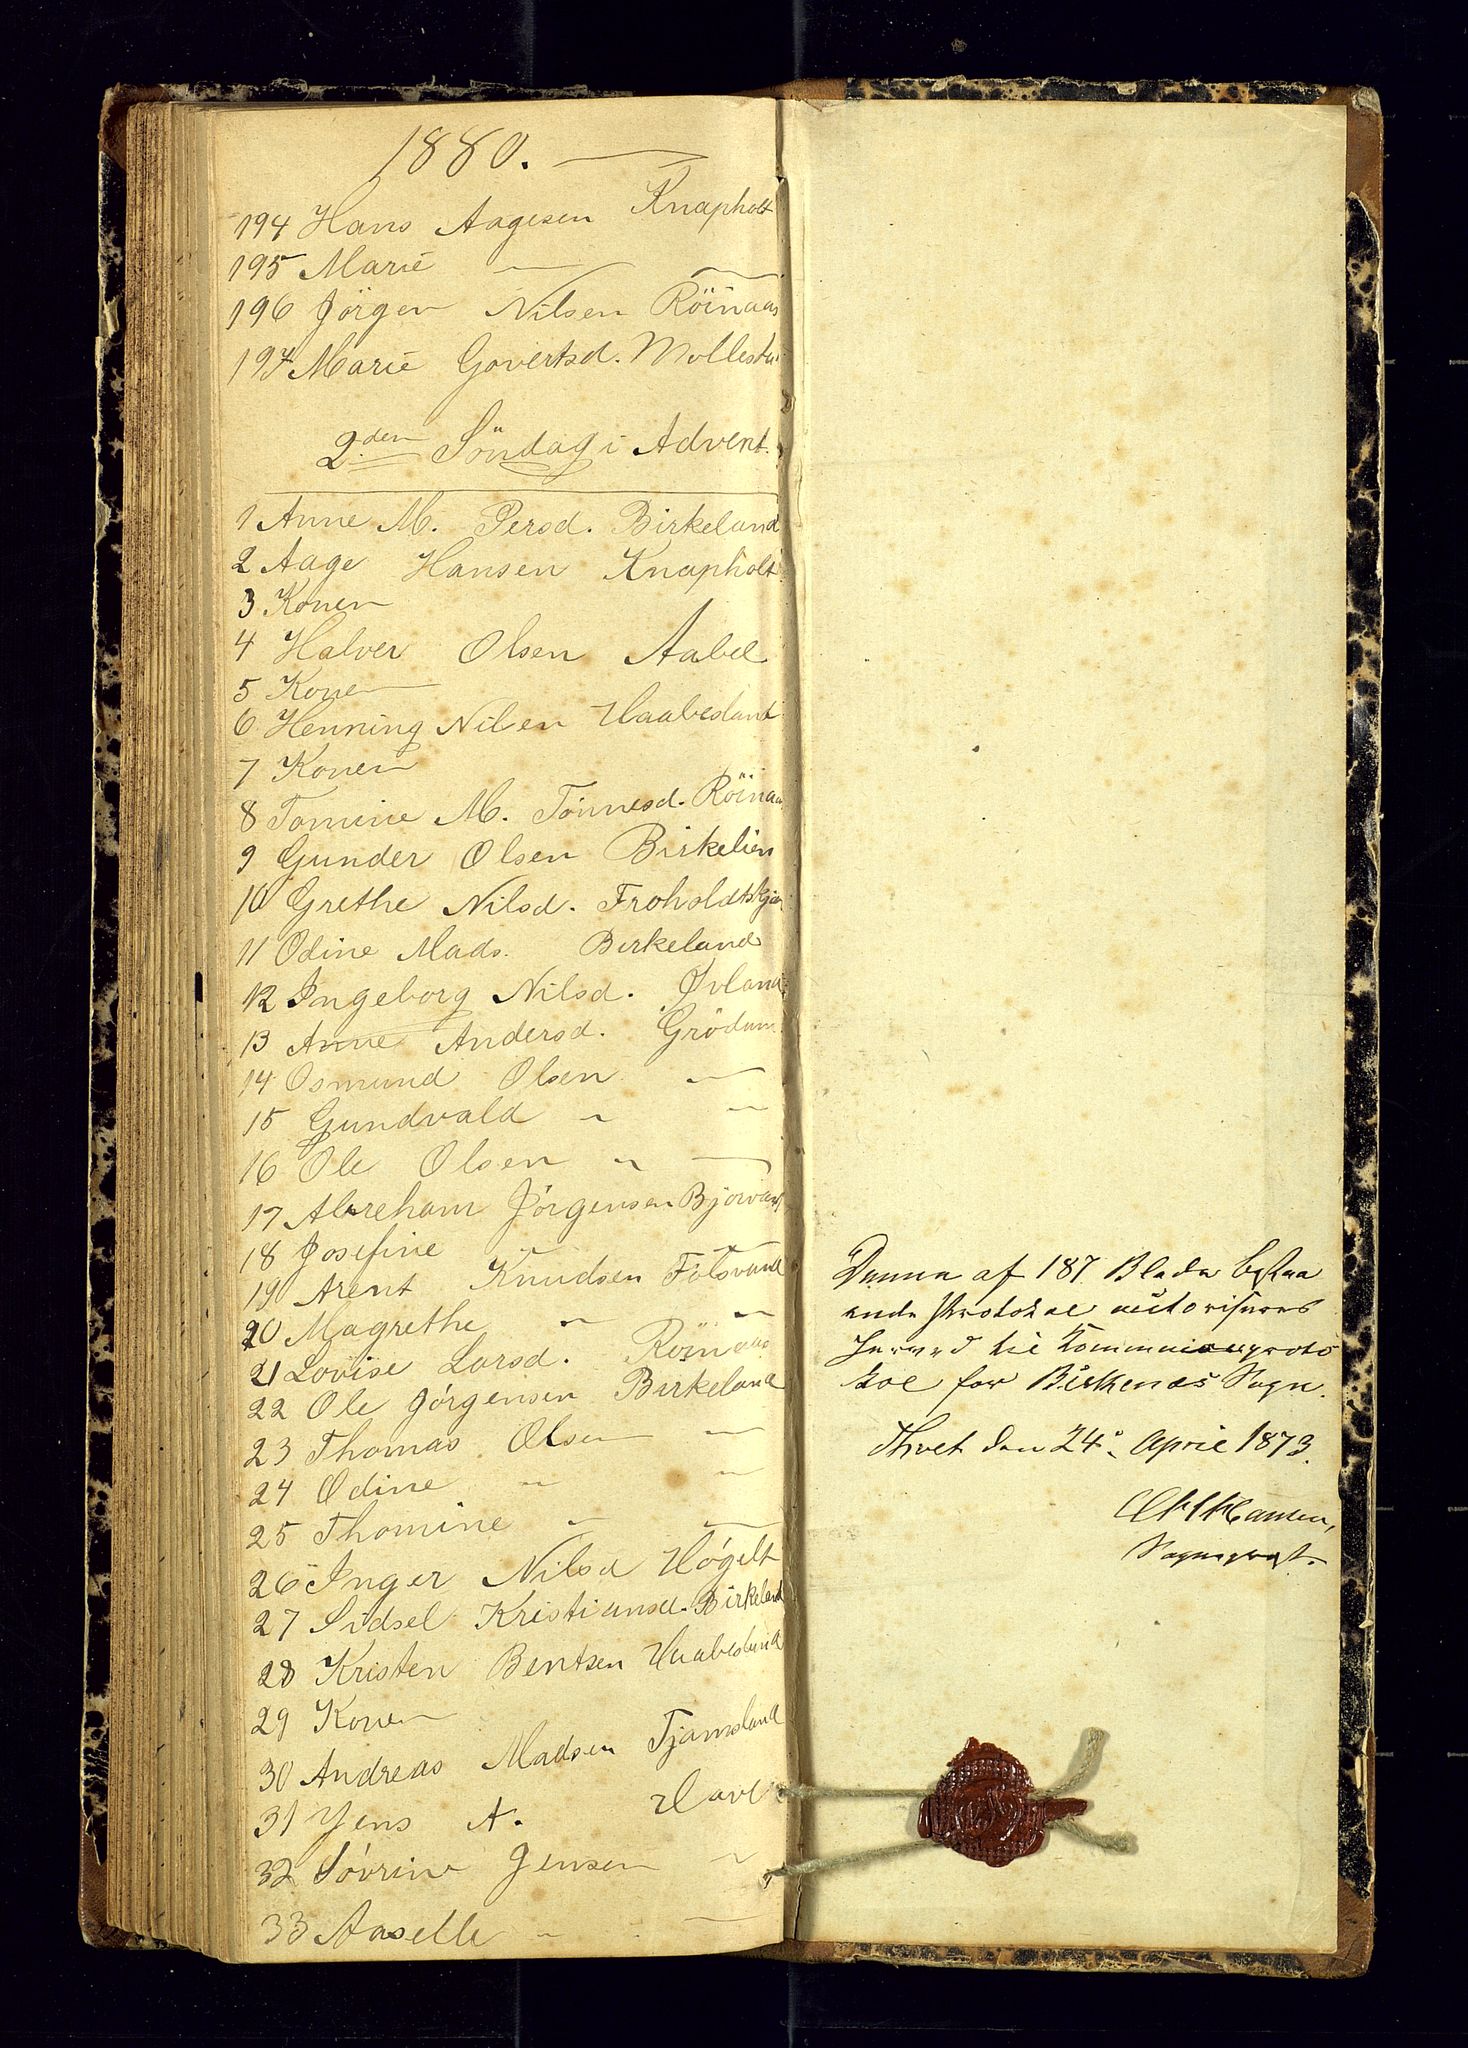 1880.
194 Hans Aagesen Knapholt
195 Marie — —
196 Jörgen Nilsen Röinaas
197 Marie Govertsd. Mollestad
2den Söndag i Advent.
1 Anne M. Persd. Birkeland
2 Aage Hansen Knapholt
3 Konen
4 Halver Olsen Aabel
5 Konen
6 Henning Nilsen Haabesland
7 Konen
8 Tomine M. Tönnesd. Röinaas
9 Gunder Olsen Birkelien
10 Grethe Nilsd. Froholdtskjær
11 Odine Mads. Birkeland
12 Ingeborg Nilsd. Øvland
13 Anne Andersd. Grödum
14 Osmund Olsen —
15 Gundvald " "
16 Ole Olsen " —
17 Abreham Jörgensen Bjorvand
18 Josefine — —
19 Arent Knudsen Fölsvand
20 Magrethe " "
21 Lovise Larsd. Röinaas
22 Ole Jörgensen Birkeland
23 Thomas Olsen "
24 Odine " "
25 Thomine " —
26 Inger Nilsd Högelt
27 Sidsel Kristiansd. Birkeland
28 Kristen Bentsen Haabesland
29 Konen
30 Andreas Madsen Tjamsland
31 Jens A.
32 Sövrine Jensen "
33 Aaselle " —
Denne af 187 Blade bestaa
ende Protokol autoriseres
herved til Kommunionproto
kol for Birkenæs Sogn.
Thvet den 24de April 1873.
Hansen,
Sogneprest.